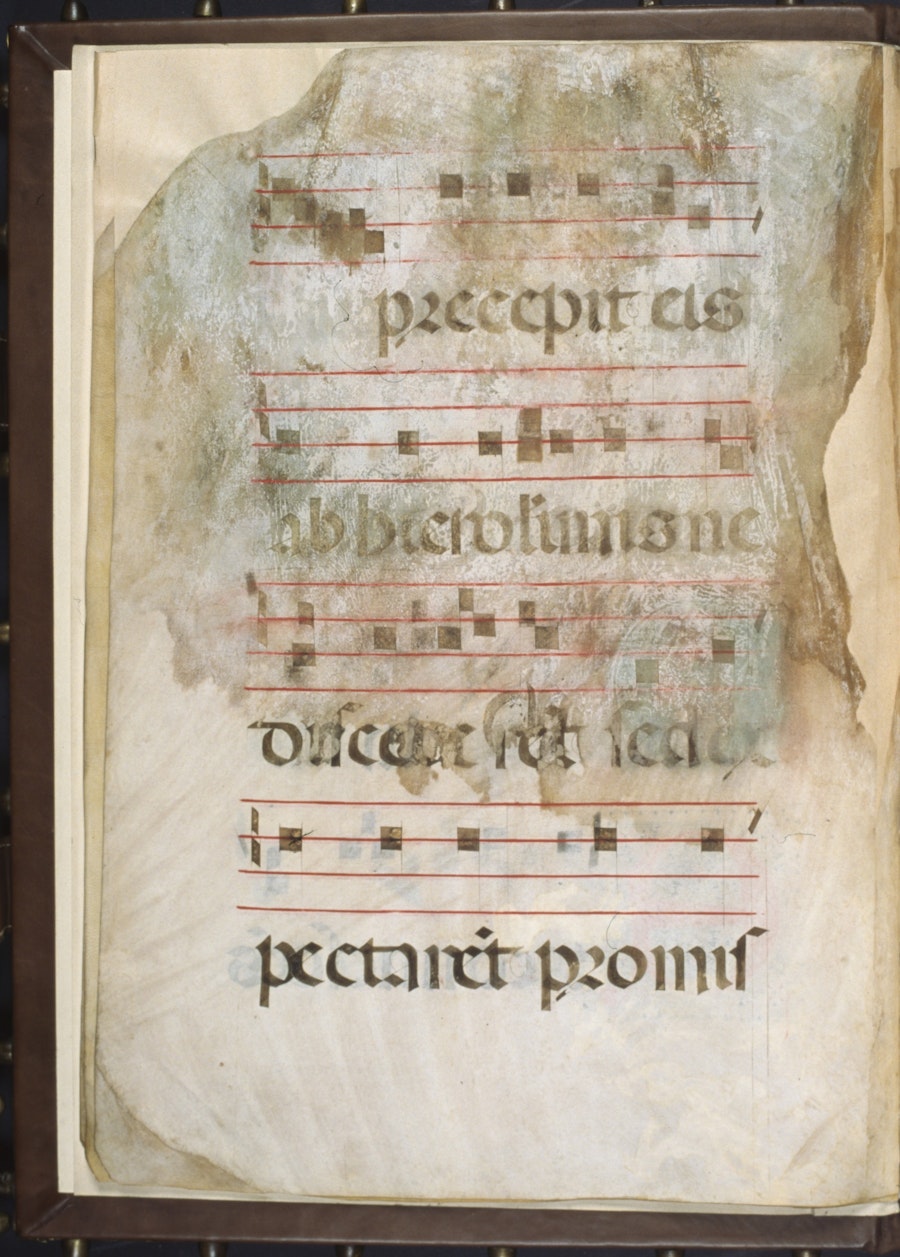 precepit eis
ab hierosolimis ne
discederet sed ex
pectaret promis